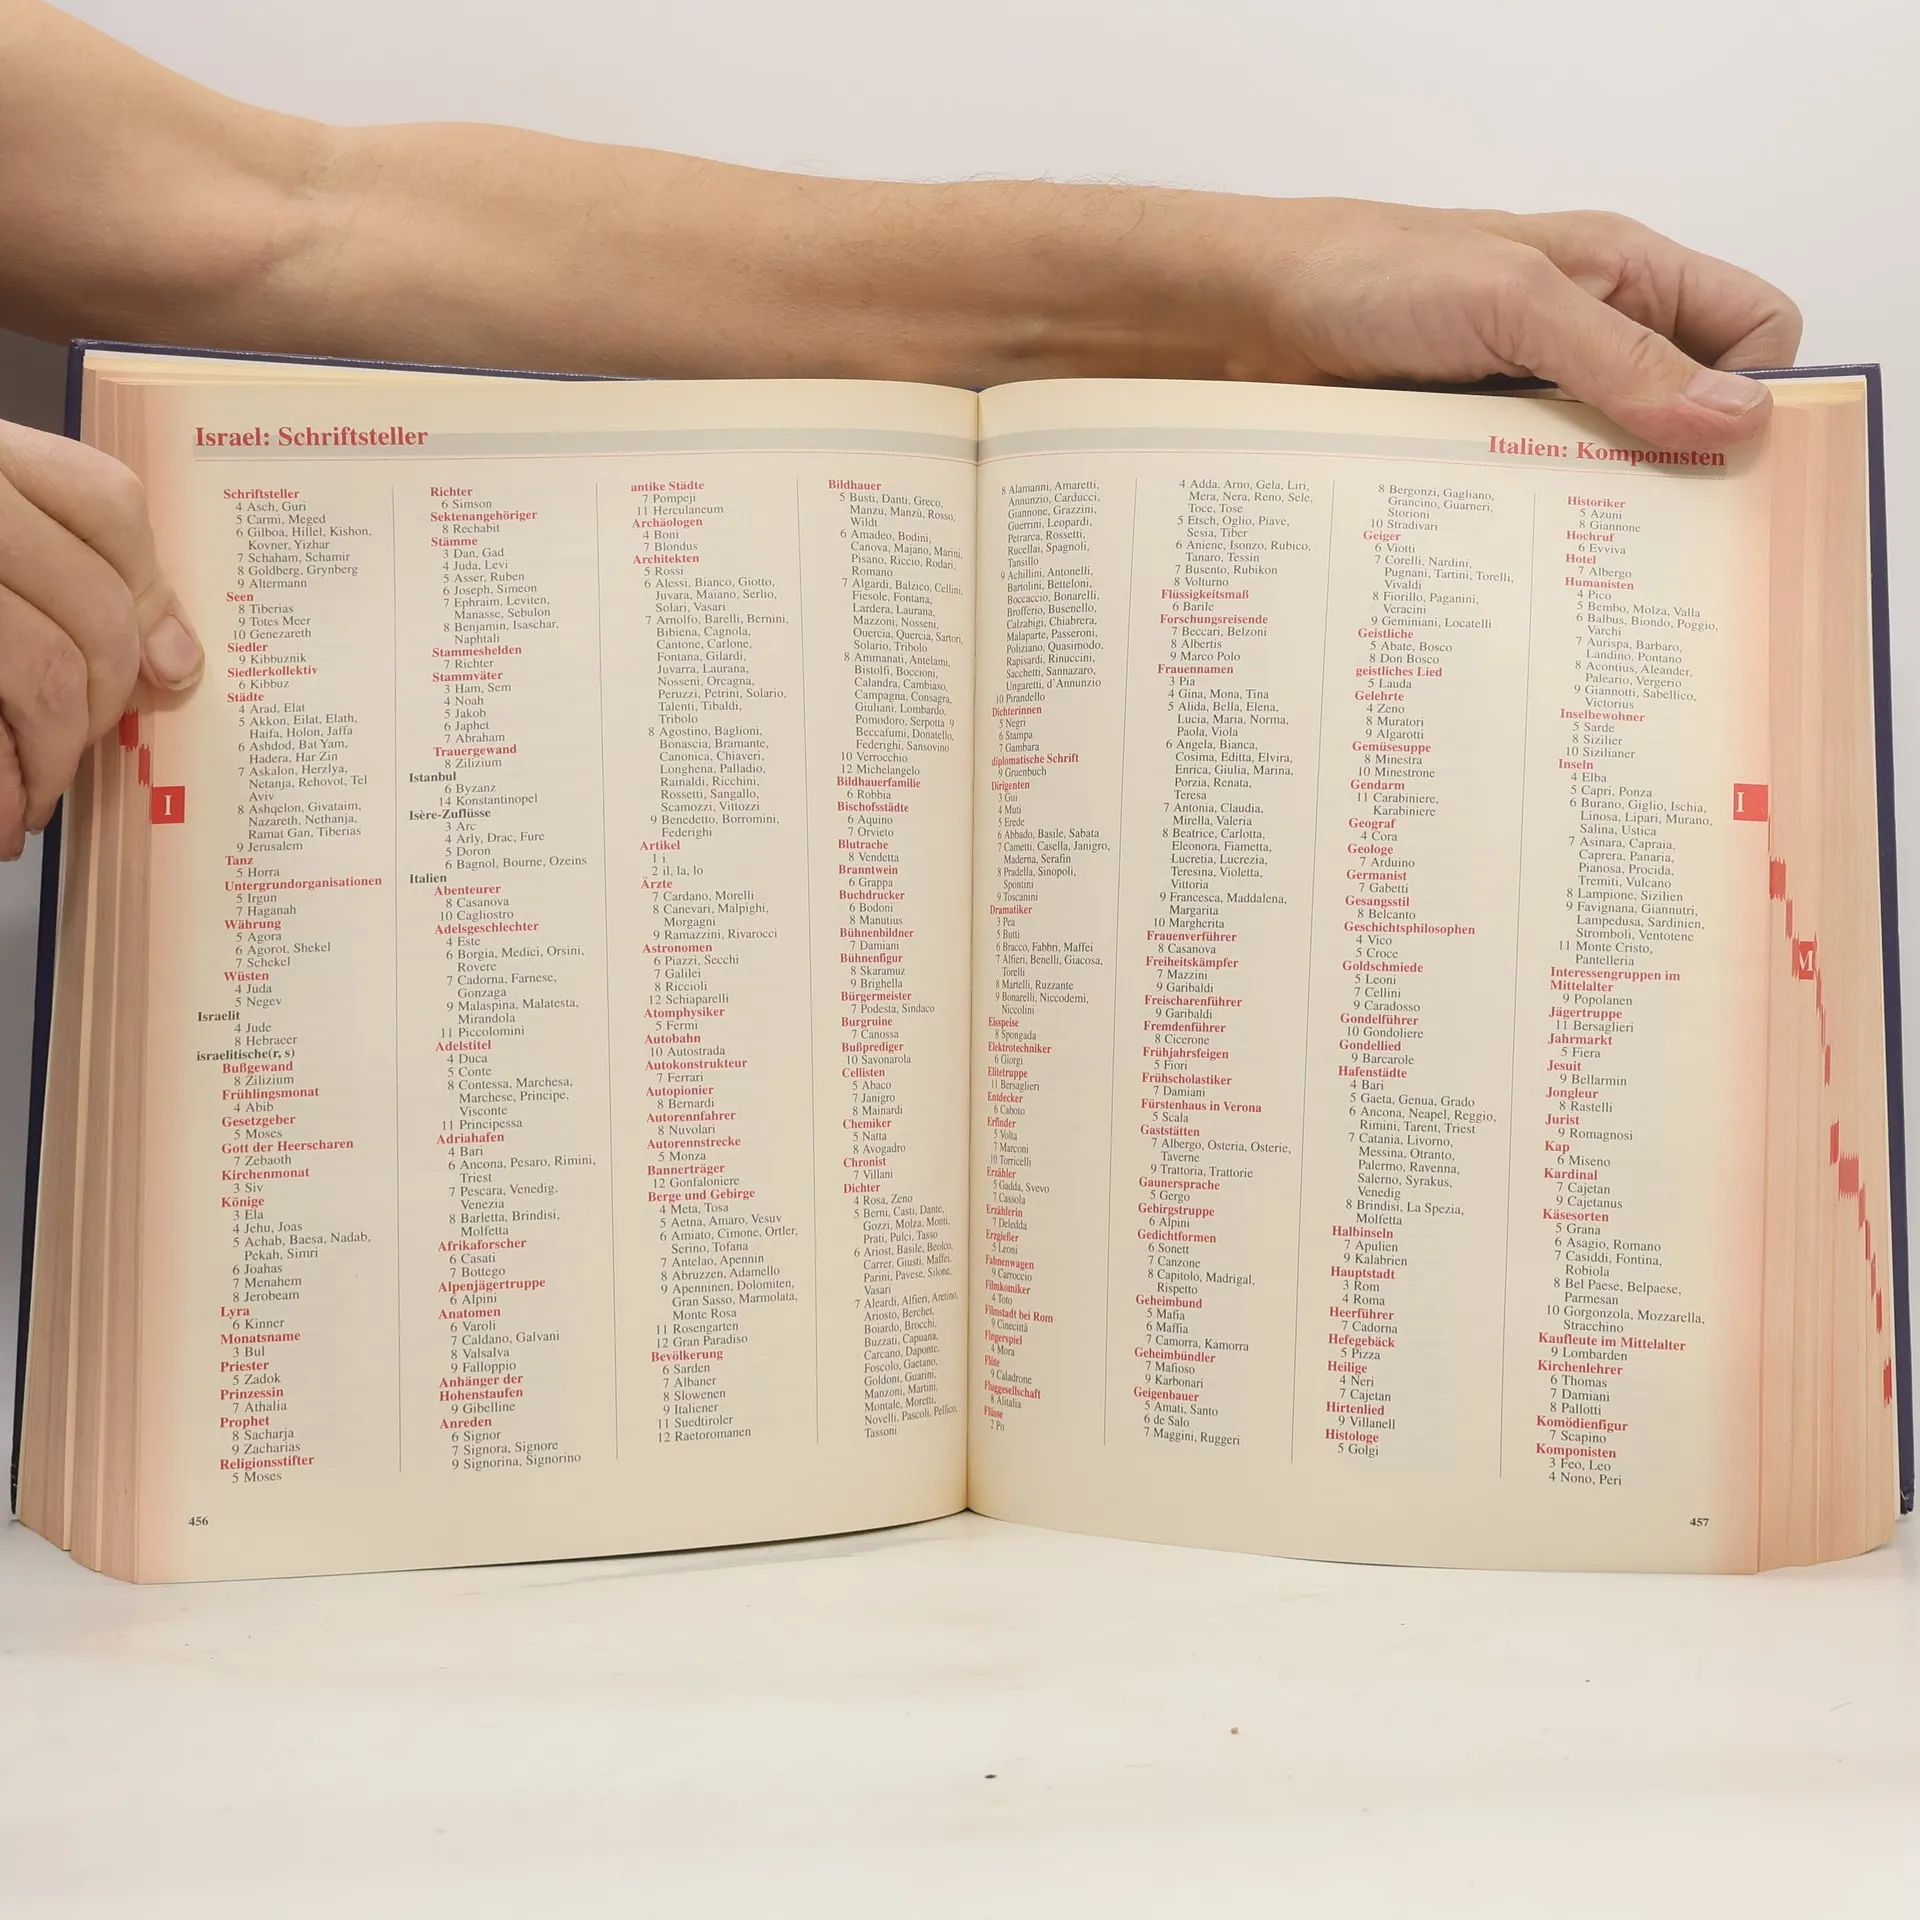 Israel: Schriftsteller
Schriftsteller
4 Asch, Guri
5 Carmi, Meged
6 Gilboa, Hillel, Kishon,
Kovner, Yizhar
7 Schaham, Schamir
8 Goldberg, Grynberg
9 Altermann
Seen
8 Tiberias
9 Totes Meer
10 Genezareth
Siedler
9 Kibbuznik
Siedlerkollektiv
6 Kibbuz
Städte
4 Arad, Elat
5 Akkon, Eilat, Elath,
Haifa, Holon, Jaffa
6 Ashdod, Bat Yam,
Hadera, Har Zin
7 Askalon, Herzlya,
Netanja, Rehovot, Tel
Aviv
8 Ashqelon, Givataim,
Nazareth, Nethanja,
Ramat Gan, Tiberias
9 Jerusalem
Tanz
5 Horra
Untergrundorganisationen
5 Irgun
7 Haganah
Währung
5 Agora
6 Agorot, Shekel
7 Schekel
Wüsten
4 Juda
5 Negev
Israelit
4 Jude
8 Hebraeer
israelitische(r, s)
Bußgewand
8 Zilizium
Frühlingsmonat
4 Abib
Gesetzgeber
5 Moses
Gott der Heerscharen
7 Zebaoth
Kirchenmonat
3 Siv
Könige
3 Ela
4 Jehu, Joas
5 Achab, Baesa, Nadab,
Pekah, Simri
6 Joahas
7 Menahem
8 Jerobeam
Lyra
6 Kinner
Monatsname
3 Bul
Priester
5 Zadok
Prinzessin
7 Athalia
Prophet
8 Sacharja
9 Zacharias
Religionsstifter
5 Moses
Richter
6 Simson
Sektenangehöriger
8 Rechabit
Stämme
3 Dan, Gad
4 Juda, Levi
5 Asser, Ruben
6 Joseph, Simeon
7 Ephraim, Leviten,
Manasse, Sebulon
8 Benjamin, Isaschar,
Naphtali
Stammeshelden
7 Richter
Stammväter
3 Ham, Sem
4 Noah
5 Jakob
6 Japhet
7 Abraham
Trauergewand
8 Zilizium
Istanbul
6 Byzanz
14 Konstantinopel
Isère-Zuflüsse
3 Arc
4 Arly, Drac, Fure
5 Doron
6 Bagnol, Bourne, Ozeins
Italien
Abenteurer
8 Casanova
10 Cagliostro
Adelsgeschlechter
4 Este
6 Borgia, Medici, Orsini,
Rovere
7 Cadorna, Farnese,
Gonzaga
9 Malaspina, Malatesta,
Mirandola
11 Piccolomini
Adelstitel
4 Duca
5 Conte
8 Contessa, Marchesa,
Marchese, Principe,
Visconte
11 Principessa
Adriahafen
4 Bari
6 Ancona, Pesaro, Rimini,
Triest
7 Pescara, Venedig,
Venezia
8 Barletta, Brindisi,
Molfetta
Afrikaforscher
6 Casati
7 Bottego
Alpenjägertruppe
6 Alpini
Anatomen
6 Varoli
7 Caldano, Galvani
8 Valsalva
9 Falloppio
Anhänger der
Hohenstaufen
9 Gibelline
Anreden
6 Signor
7 Signora, Signore
9 Signorina, Signorino
antike Städte
7 Pompeji
11 Herculaneum
Archäologen
4 Boni
7 Blondus
Architekten
5 Rossi
6 Alessi, Bianco, Giotto,
Juvara, Maiano, Serlio,
Solari, Vasari
7 Arnolfo, Barelli, Bernini,
Bibiena, Cagnola,
Cantone, Carlone,
Fontana, Gilardi,
Juvarra, Laurana,
Nosseni, Orcagna,
Peruzzi, Petrini, Solario,
Talenti, Tibaldi,
Tribolo
8 Agostino, Baglioni,
Bonascia, Bramante,
Canonica, Chiaveri,
Longhena, Palladio,
Rainaldi, Ricchini,
Rossetti, Sangallo,
Scamozzi, Vittozzi
9 Benedetto, Borromini,
Federighi
Artikel
1 i
2 il, la, lo
Ärzte
7 Cardano, Morelli
8 Canevari, Malpighi,
Morgagni
9 Ramazzini, Rivarocci
Astronomen
6 Piazzi, Secchi
7 Galilei
8 Riccioli
12 Schiaparelli
Atomphysiker
5 Fermi
Autobahn
10 Autostrada
Autokonstrukteur
7 Ferrari
Autopionier
8 Bernardi
Autorennfahrer
8 Nuvolari
Autorennstrecke
5 Monza
Bannerträger
12 Gonfaloniere
Berge und Gebirge
4 Meta, Tosa
5 Aetna, Amaro, Vesuv
6 Amiato, Cimone, Ortler,
Serino, Tofana
7 Antelao, Apennin
8 Abruzzen, Adamello
9 Apenninen, Dolomiten,
Gran Sasso, Marmolata,
Monte Rosa
11 Rosengarten
12 Gran Paradiso
Bevölkerung
6 Sarden
7 Albaner
8 Slowenen
9 Italiener
11 Suedtiroler
12 Raetoromanen
Bildhauer
5 Busti, Danti, Greco,
Manzu, Manzù, Rosso,
Wildt
6 Amadeo, Bodini,
Canova, Majano, Marini,
Pisano, Riccio, Rodari,
Romano
7 Algardi, Balzico, Cellini,
Fiesole, Fontana,
Lardera, Laurana,
Mazzoni, Nosseni,
Ouercia, Quercia, Sartori,
Solario, Tribolo
8 Ammanati, Antelami,
Bistolfi, Boccioni,
Calandra, Cambiaso,
Campagna, Consagra,
Giuliani, Lombardo,
Pomodoro, Serpotta 9
Beccafumi, Donatello,
Federighi, Sansovino
10 Verrocchio
12 Michelangelo
Bildhauerfamilie
6 Robbia
Bischofsstädte
6 Aquino
7 Orvieto
Blutrache
8 Vendetta
Branntwein
6 Grappa
Buchdrucker
6 Bodoni
8 Manutius
Bühnenbildner
7 Damiani
Bühnenfigur
8 Skaramuz
9 Brighella
Bürgermeister
7 Podesta, Sindaco
Burgruine
7 Canossa
Bußprediger
10 Savonarola
Cellisten
5 Abaco
7 Janigro
8 Mainardi
Chemiker
5 Natta
8 Avogadro
Chronist
7 Villani
Dichter
4 Rosa, Zeno
5 Berni, Casti, Dante,
Gozzi, Molza, Monti,
Prati, Pulci, Tasso
6 Ariost, Basile, Beolco,
Carrer, Giusti, Maffei,
Parini, Pavese, Silone,
Vasari
7 Aleardi, Alfieri, Aretino,
Ariosto, Berchet,
Boiardo, Brocchi,
Buzzati, Capuana,
Carcano, Daponte,
Foscolo, Gaetano,
Goldoni, Guarini,
Manzoni, Martini,
Montale, Moretti,
Novelli, Pascoli, Pellico,
Tassoni
456
I
Italien: Komponisten
8 Alamanni, Amaretti,
Annunzio, Carducci,
Giannone, Grazzini,
Guerrini, Leopardi,
Petrarca, Rossetti,
Rucellai, Spagnoli,
Tansillo
9 Achillini, Antonelli,
Bartolini, Betteloni,
Boccaccio, Bonarelli,
Brofferio, Busenello,
Calzabigi, Chiabrera,
Malaparte, Passeroni,
Poliziano, Quasimodo,
Rapisardi, Rinuccini,
Sacchetti, Sannazaro,
Ungaretti, d'Annunzio
10 Pirandello
Dichterinnen
5 Negri
6 Stampa
7 Gambara
diplomatische Schrift
9 Gruenbuch
Dirigenten
3 Gui
4 Muti
5 Erede
6 Abbado, Basile, Sabata
7 Cametti, Casella, Janigro,
Maderna, Serafin
8 Pradella, Sinopoli,
Spontini
9 Toscanini
Dramatiker
3 Pea
5 Butti
6 Bracco, Fabbri, Maffei
7 Alfieri, Benelli, Giacosa,
Torelli
8 Martelli, Ruzzante
9 Bonarelli, Niccodemi,
Niccolini
Eisspeise
8 Spongada
Elektrotechniker
6 Giorgi
Elitetruppe
11 Bersaglieri
Entdecker
6 Caboto
Erfinder
5 Volta
7 Marconi
10 Torricelli
Erzähler
5 Gadda, Svevo
7 Cassola
Erzählerin
7 Deledda
Erzgießer
5 Leoni
Fahnenwagen
9 Carroccio
Filmkomiker
4 Toto
Filmstadt bei Rom
9 Cinecittà
Fingerspiel
4 Mora
Flöte
9 Caladrone
Fluggesellschaft
8 Alitalia
Flüsse
2 Po
4 Adda, Arno, Gela, Liri,
Mera, Nera, Reno, Sele,
Toce, Tose
5 Etsch, Oglio, Piave,
Sesia, Tiber
6 Aniene, Isonzo, Rubico,
Tanaro, Tessin
7 Busento, Rubikon
8 Volturno
Flüssigkeitsmaß
6 Barile
Forschungsreisende
7 Beccari, Belzoni
8 Albertis
9 Marco Polo
Frauennamen
3 Pia
4 Gina, Mona, Tina
5 Alida, Bella, Elena,
Lucia, Maria, Norma,
Paola, Viola
6 Angela, Bianca,
Cosima, Editta, Elvira,
Enrica, Giulia, Marina,
Porzia, Renata,
Teresa
7 Antonia, Claudia,
Mirella, Valeria
8 Beatrice, Carlotta,
Eleonora, Fiametta,
Lucretia, Lucrezia,
Teresina, Violetta,
Vittoria
9 Francesca, Maddalena,
Margarita
10 Margherita
Frauenverführer
8 Casanova
Freiheitskämpfer
7 Mazzini
9 Garibaldi
Freischarenführer
9 Garibaldi
Fremdenführer
8 Cicerone
Frühjahrsfeigen
5 Fiori
Frühscholastiker
7 Damiani
Fürstenhaus in Verona
5 Scala
Gaststätten
7 Albergo, Osteria, Osterie,
Taverne
9 Trattoria, Trattorie
Gaunersprache
5 Gergo
Gebirgstruppe
6 Alpini
Gedichtformen
6 Sonett
7 Canzone
8 Capitolo, Madrigal,
Rispetto
Geheimbund
5 Mafia
6 Maffia
7 Camorra, Kamorra
Geheimbündler
7 Mafioso
9 Karbonari
Geigenbauer
5 Amati, Santo
6 de Salo
7 Maggini, Ruggeri
8 Bergonzi, Gagliano,
Grancino, Guarneri,
Storioni
10 Stradivari
Geiger
6 Viotti
7 Corelli, Nardini,
Pugnani, Tartini, Torelli,
Vivaldi
8 Fiorillo, Paganini,
Veracini
9 Geminiani, Locatelli
Geistliche
5 Abate, Bosco
8 Don Bosco
geistliches Lied
5 Lauda
Gelehrte
4 Zeno
8 Muratori
9 Algarotti
Gemüsesuppe
8 Minestra
10 Minestrone
Gendarm
11 Carabiniere,
Karabiniere
Geograf
4 Cora
Geologe
7 Arduino
Germanist
7 Gabetti
Gesangsstil
8 Belcanto
Geschichtsphilosophen
4 Vico
5 Croce
Goldschmiede
5 Leoni
7 Cellini
9 Caradosso
Gondelführer
10 Gondoliere
Gondellied
9 Barcarole
Hafenstädte
4 Bari
5 Gaeta, Genua, Grado
6 Ancona, Neapel, Reggio,
Rimini, Tarent, Triest
7 Catania, Livorno,
Messina, Otranto,
Palermo, Ravenna,
Salerno, Syrakus,
Venedig
8 Brindisi, La Spezia,
Molfetta
Halbinseln
7 Apulien
9 Kalabrien
Hauptstadt
3 Rom
4 Roma
Heerführer
7 Cadorna
Hefegebäck
5 Pizza
Heilige
4 Neri
7 Cajetan
Hirtenlied
9 Villanell
Histologe
5 Golgi
Historiker
5 Azuni
8 Giannone
Hochruf
6 Evviva
Hotel
7 Albergo
Humanisten
4 Pico
5 Bembo, Molza, Valla
6 Balbus, Biondo, Poggio,
Varchi
7 Aurispa, Barbaro,
Landino, Pontano
8 Acontius, Aleander,
Paleario, Vergerio
9 Giannotti, Sabellico,
Victorius
Inselbewohner
5 Sarde
8 Sizilier
10 Sizilianer
Inseln
4 Elba
5 Capri, Ponza
6 Burano, Giglio, Ischia,
Linosa, Lipari, Murano,
Salina, Ustica
7 Asinara, Capraia,
Caprera, Panaria,
Pianosa, Procida,
Tremiti, Vulcano
8 Lampione, Sizilien
9 Favignana, Giannutri,
Lampedusa, Sardinien,
Stromboli, Ventotene
11 Monte Cristo,
Pantelleria
Interessengruppen im
Mittelalter
9 Popolanen
Jägertruppe
11 Bersaglieri
Jahrmarkt
5 Fiera
Jesuit
9 Bellarmin
Jongleur
8 Rastelli
Jurist
9 Romagnosi
Kap
6 Miseno
Kardinal
7 Cajetan
9 Cajetanus
Käsesorten
5 Grana
6 Asagio, Romano
7 Casiddi, Fontina,
Robiola
8 Bel Paese, Belpaese,
Parmesan
10 Gorgonzola, Mozzarella,
Stracchino
Kaufleute im Mittelalter
9 Lombarden
Kirchenlehrer
6 Thomas
7 Damiani
8 Pallotti
Komödienfigur
7 Scapino
Komponisten
3 Feo, Leo
4 Nono, Peri
457
I
M